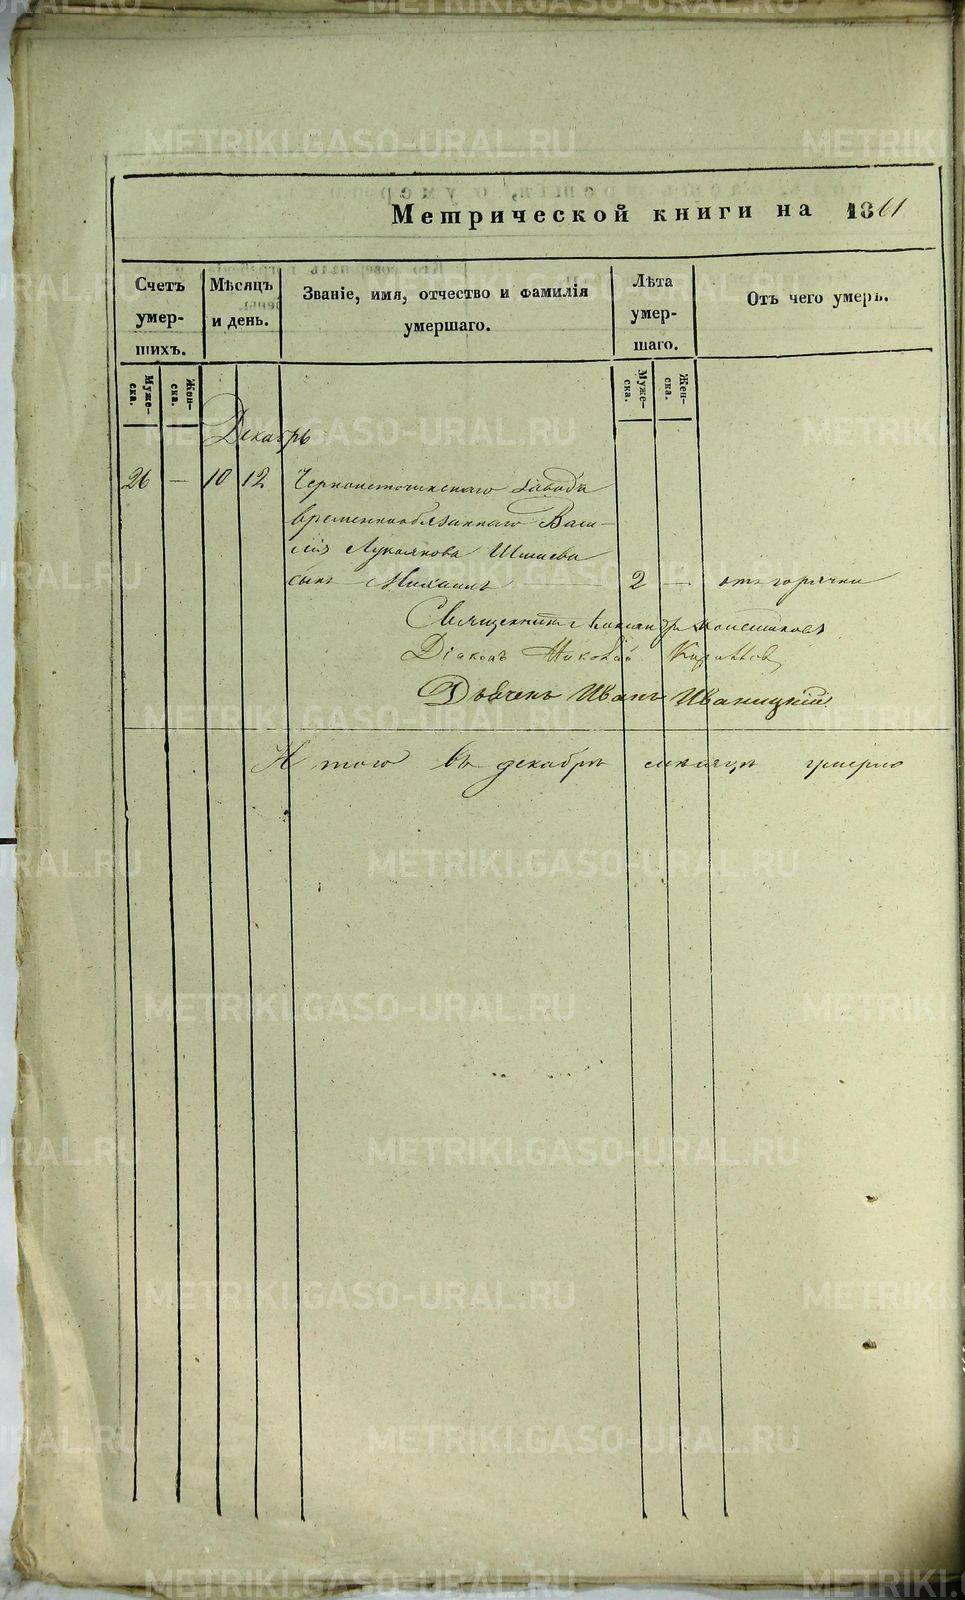 Метрической книги на 1861
Счетъ умер-шихъ.
Мѣсяцъ и день.
Званіе, имя, отчество и фамилія умершаго.
Лѣта умер-шаго.
Отъ чего умеръ.
Муже-ска.
Жен-ска.
Муже-ска.
Жен-ска.
Декабрь
26 — 10 12 Черноисточинскаго завода
временнообязаннаго Васи-
лія Лукоянова Шмаева
сынъ Михаилъ 2 — отъ горячки
Священникъ
Діаконъ Николай
Дьячекъ Иванъ Иваницкій
Итого въ декабрѣ мѣсяцѣ умерло
METRIKI.GASO-URAL.RU